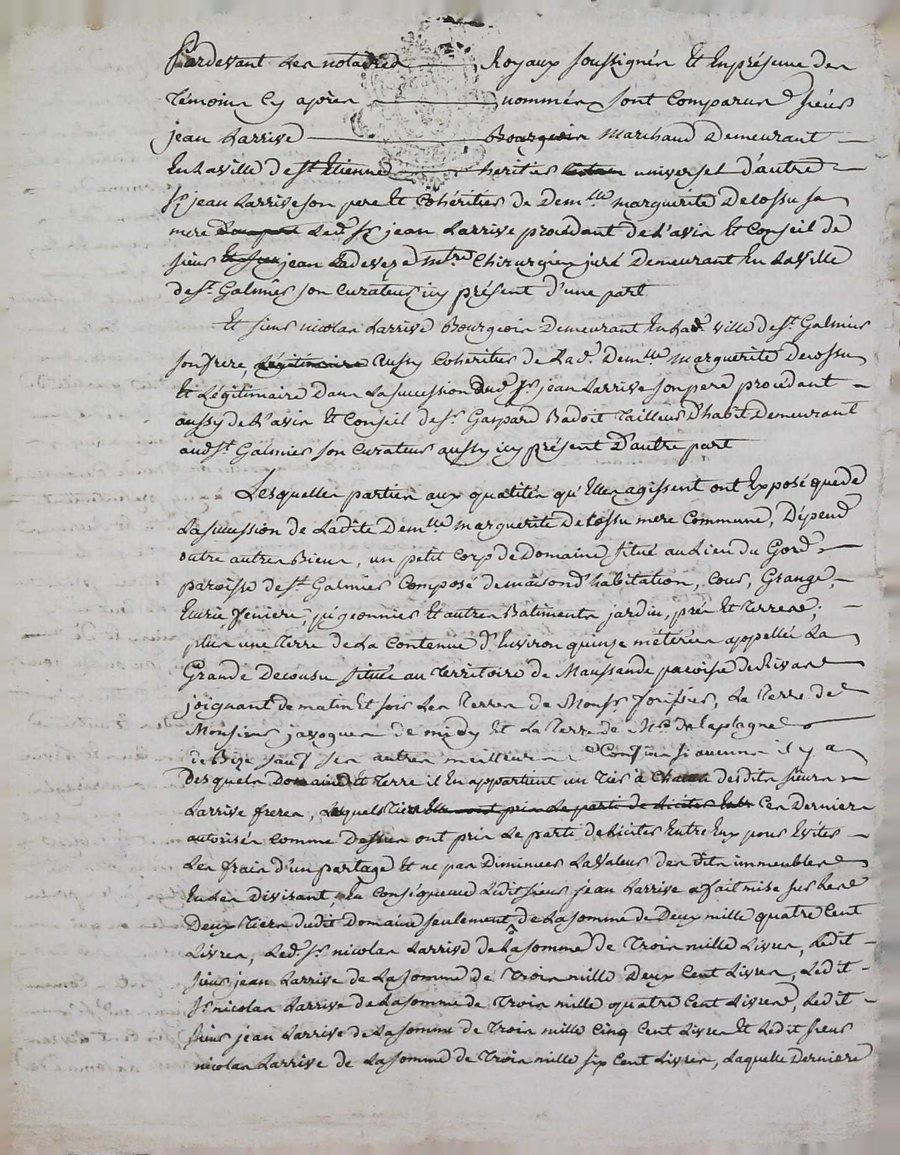 Pardevant Les notaires Royaux soussignés Et En présence des
témoins Cy après nommés sont Comparus sieur
jean Larrive Bourgeois Marchand Demeurant
En La ville de st. Etienne heritier universel d'autre
Sr. jean Larrive son pere Et Cohéritier de Demlle marguerite Decossu sa
mere Ledt. Sr. jean Larrive procédant de L'avis Et Conseil de
sieur jean Ladeveze mtre. Chirurgien juré Demeurant En La Ville
de St. Galmier son Curateur icy présent d'une part
Et sieur nicolas Larrive Bourgeois Demeurant En Lad. ville de St. Galmier
son frere, Légitimaire Aussy Cohéritier de Lad. Demlle marguerite Decossu
Et Légitimaire Dans La sucession Dud. Sr. jean Larrive son pere procédant
aussy de L'avis Et Conseil de Sr. Gaspard Badoit Tailleur D'habit Demeurant
aud. St. Galmier son Curateur aussy icy présent D'autre part
Lesquelles parties aux qualités qu'Elles agissent ont Exposé que de
La sucession de Ladite Demlle marguerite Decossu mere Commune, Dépend
outre autres Biens, un petit Corps de Domaine situé au Lieu du
paroisse de St. Galmier Composé de maison d'habitation, Cour, Grange,
Ecurie feniere, pigeonnier Et autres Batiments jardin, prés Et terres;
plus une Terre de La Contenue d'Environ quinze méterées appellée La
Grande Decousu située au Territoire de Maussande paroisse de Rivas
joignant de matin Et soir Les Terres de Monsr. , La Terre de
Monsieur javogues de midy Et La Terre de Mr. de Laplagne
de Bize sauf ses autres meilleurs Confins si aucuns il y a
Desquels Domaine Et Terre il En appartient un Tiers à Chacun desdits sieurs
Larrive freres, Lesquels Elles ont pris Le parti de Liciter Entr Ces Derniers
autorisés Comme Dessus ont pris Le parti de Liciter Entre Eux pour Eviter
Les frais d'un partage Et ne pas Diminuer La Valeur des dits immeubles
En Les Divisant, En Conséquence Ledit sieur jean Larrive a fait mise sur Les
Deux Tiers dudit Domaine seulement de La somme de Deux mille quatre Cent
Livres, Led. Sr. nicolas Larrive de La somme de Trois mille Livres, Ledit
sieur jean Larrive de La somme de Trois mille Deux Cent Livres, Ledit
Sr. nicolas Larrive de La somme de Trois mille quatre Cent Livres, Ledit
sieur jean Larrive de La somme de Trois mille Cinq Cent Livres Et Ledit sieur
nicolas Larrive de La somme de Trois mille six Cent Livres, Laquelle Derniere